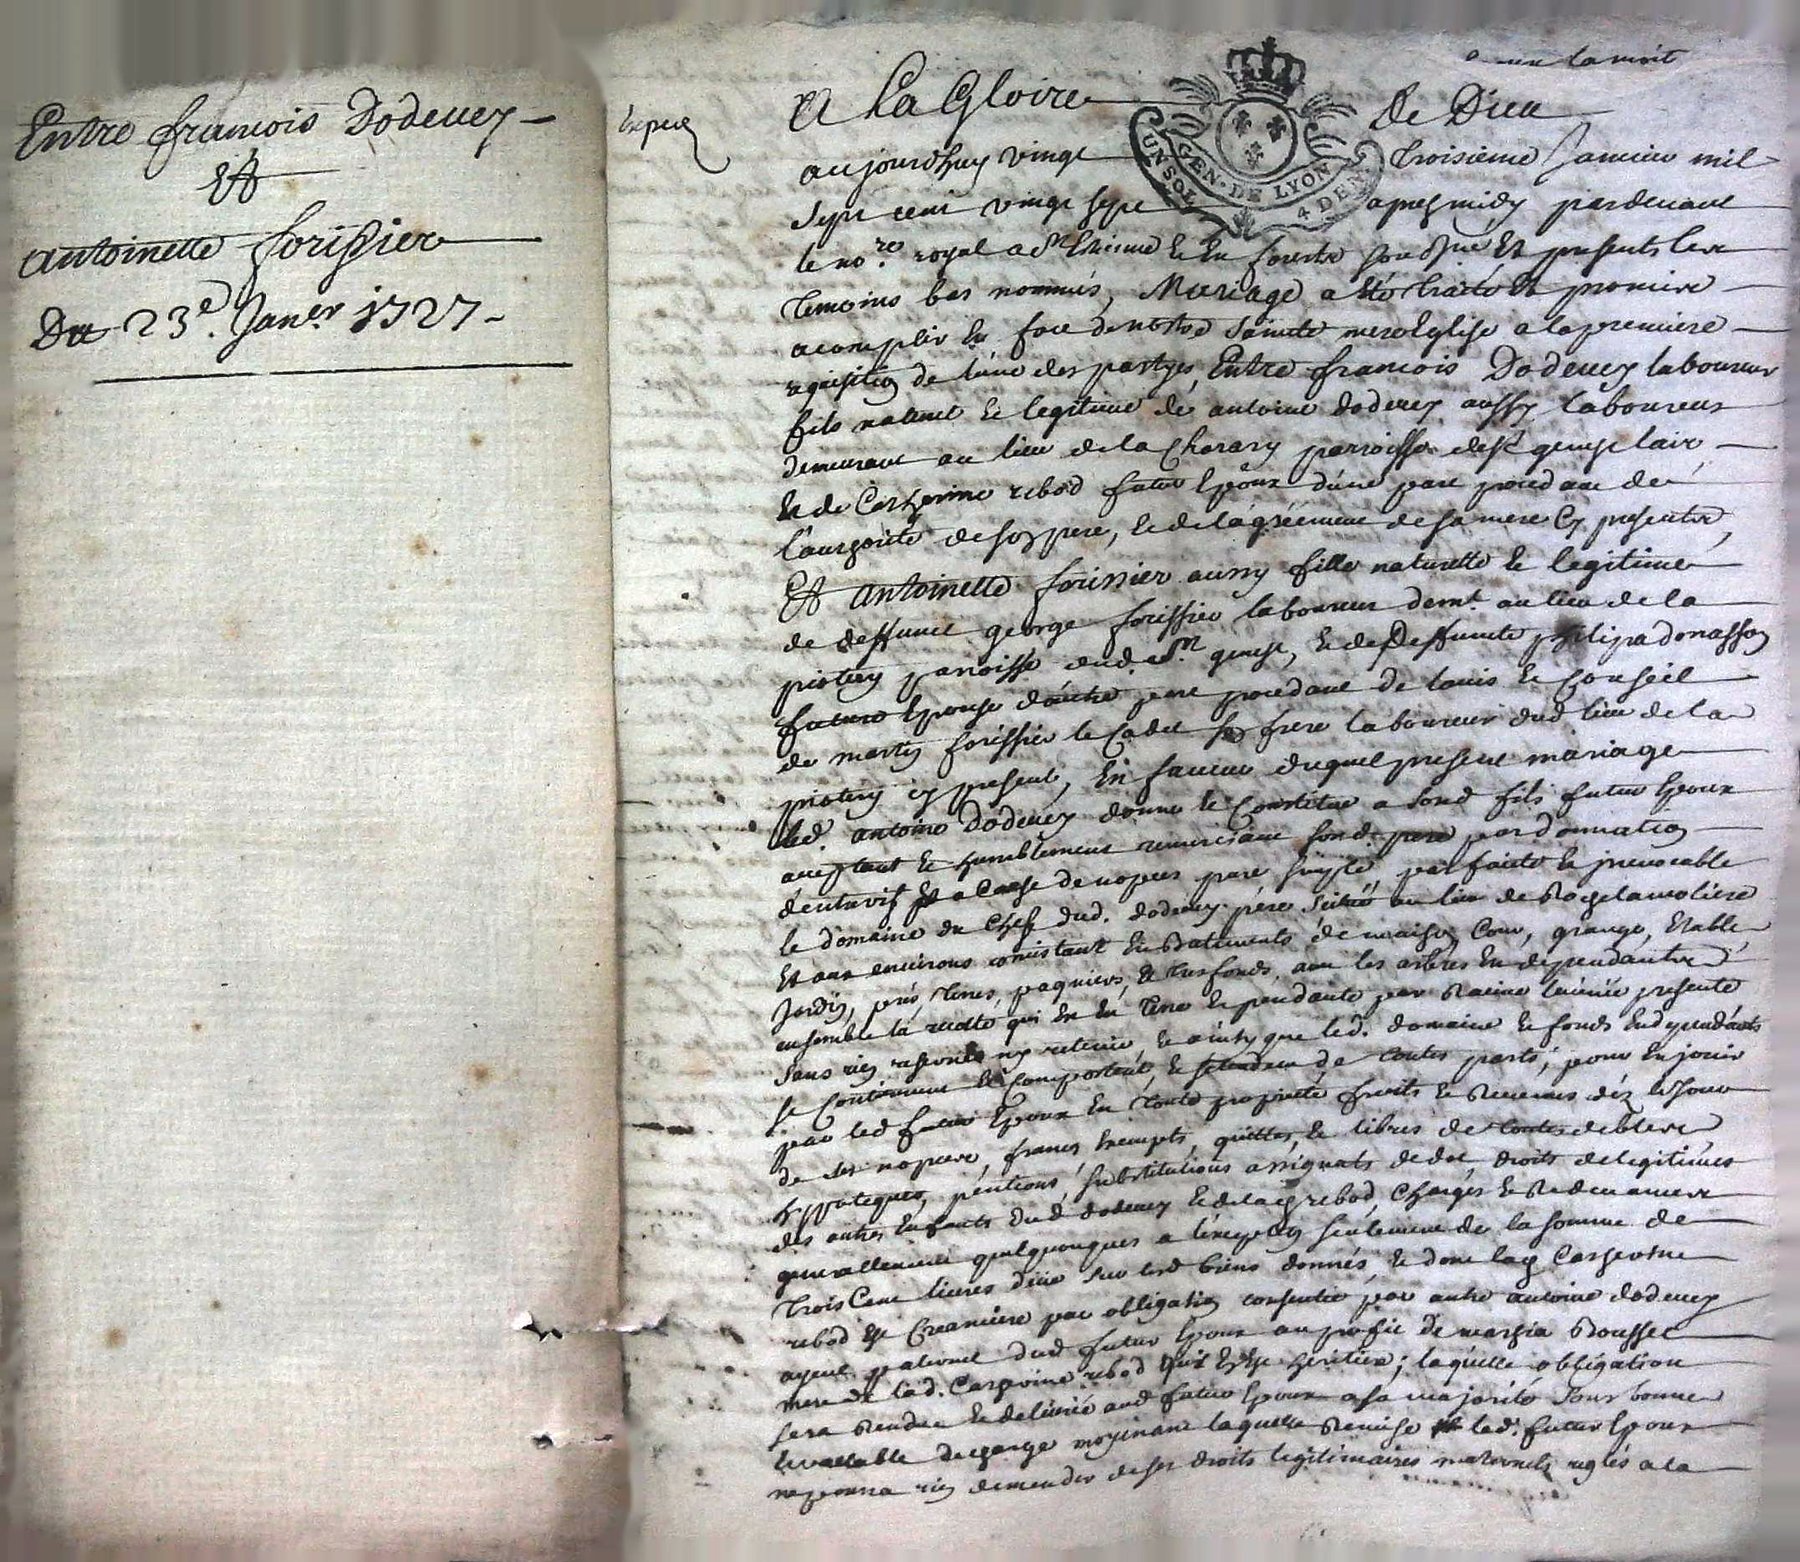 Entre francois Dodevey
Et
antoinette forissier
Du 23e. Janer 1727
A La Gloire De Dieu
aujourdhuy vingt troisieme Janvier mil
GEN. DE LYON
UN SOL 4 DEN.
sept cent vingt sept apres midy pardevant
le nore. royal a St Etienne le en forests et presents les
temoins bas nommés, Mariage a été traité et promis
acomplir en face de nostre Sainte mere Eglise a la premiere
requisition de l'une des partyes, Entre francois Dodevey laboureur
fils naturel et legitime de antoine dodevey aussy laboureur
demeurant au lieu de la Charary parroisse de St genest lair
et de Catherine rebod futur Epoux d'une part procedant de
l'authorité de son pere, et de l'agréement de sa mere cy presents,
Et antoinette forissier aussy fille naturelle et legitime
de deffunct george forissier laboureur demt. au lieu de la
piotery parroisse dud. St. genest, et de deffuncte philipa donasson
future Epouse d'autre part procedant de l'avis et conseil
de martin forissier le cadet son frere laboureur dud lieu de la
piotery cy present, En faveur duquel present mariage
led. antoine Dodevey donne et Constitue a sond fils futur Epoux
acceptant et humblement remerciant sond. pere par donnation
d'entre vifs et a cause de nopces pure simple parfaite et irrevocable
le domaine du Chef dud. dodevey pere situé au lieu de Rochelamoliere
Et aux environs consistant en Batiments de maison, Cour, grange, Etable
Jardin, prés, terres, paquiers, et tresfonds, avec les arbres en dependants
ensemble la recolte qui est en terre et pendante par Racine l'année presente
sans rien reserver ny retenir et ainsy que led. domaine et fonds en dependants
se Contiennent et Comportent, et s'etendent de toutes parts, pour en jouir
par led futur Epoux en toute proprieté fruits et Revenus dez le jour
de ses nopces, francs, exempts, quittes, et libres de toutes debtes
hypoteques, pentions, substitutions assignats de dot, droits de legitimes
des autres Enfants dud dodevey et de lad rebod, Charges et Redevances
generallement quelquonques a l'exception seulement de la somme de
trois Cent livres düe sur lesd biens donnés, et dont lad Catherine
rebod est Creanciere par obligation consentie par autre antoine dodevey
ayeul paternel dud futur Epoux au profit de Rousset
mere de lad. Catherine rebod heritiere; laquelle obligation
sera Rendue et delivrée aud futur Epoux a sa majorité sous bonne
et vallable decharge moyenant laquelle Remise led. futur Epoux
ne poura rien demander de ses droits legitimaires maternels reglés a la